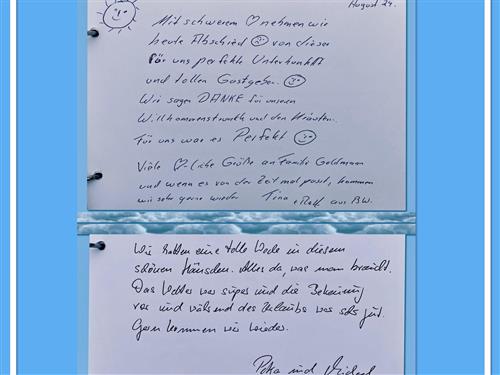 August 24.
Mit schwerem ♡ nehmen wir
heute Abschied ☺ von dieser
für uns perfekte Unterkunft
und tollen Gastgeber. ☺
Wir sagen DANKE für unseren
Willkommenstrunk und den Kräutern.
Für uns war es Perfekt ☺
Viele ♡-liche Grüße an Familie Goldmann
und wenn es von der Zeit mal passt, kommen
wir sehr gerne wieder Tina + Ralf aus BW.
Wir hatten eine tolle Woche in diesem
schönen Häuschen. Alles da, was man braucht.
Das Wetter war super und die Betreuung
vor und während des Urlaubs war sehr gut.
Gern kommen wir wieder.
und Michael